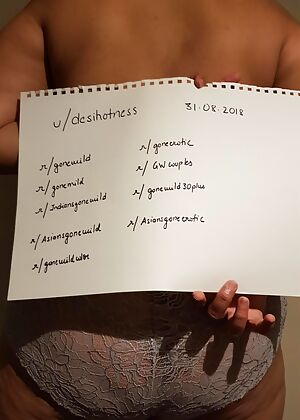 u/desihotness
31.08.2018
r/gonewild
r/gonemild
r/Indiansgonewild
r/Asiansgonewild
r/gonewildcolor
r/gonerotic
r/GWcouples
r/gonewild30plus
r/Asiansgonerotic